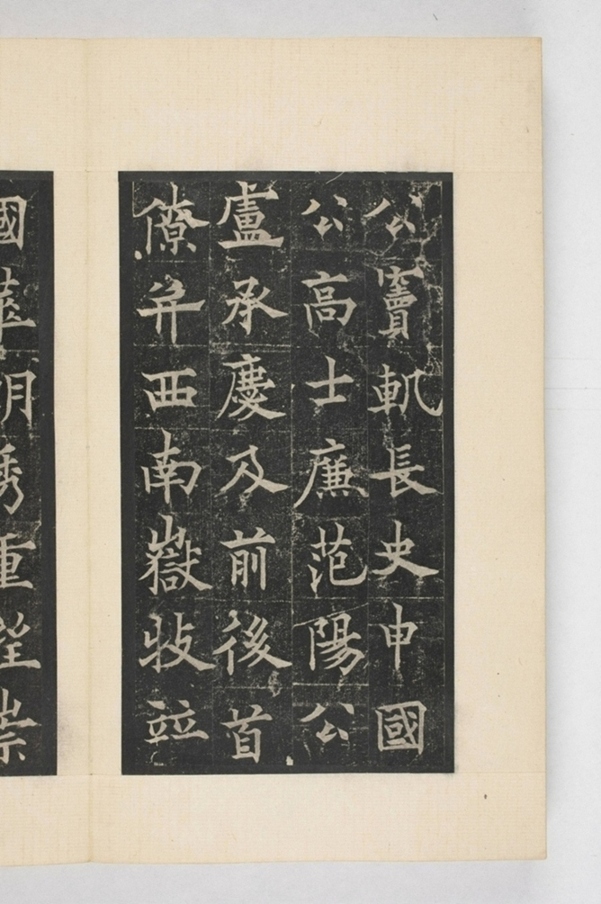 公竇軌長史申國
公高士廉范陽公
盧承慶及前後首
僚并西南嶽牧竝
國華明秀重鋞崇